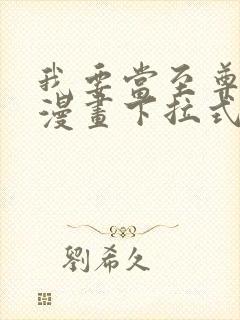 我要當至尊
漫畫下拉式
劉希久